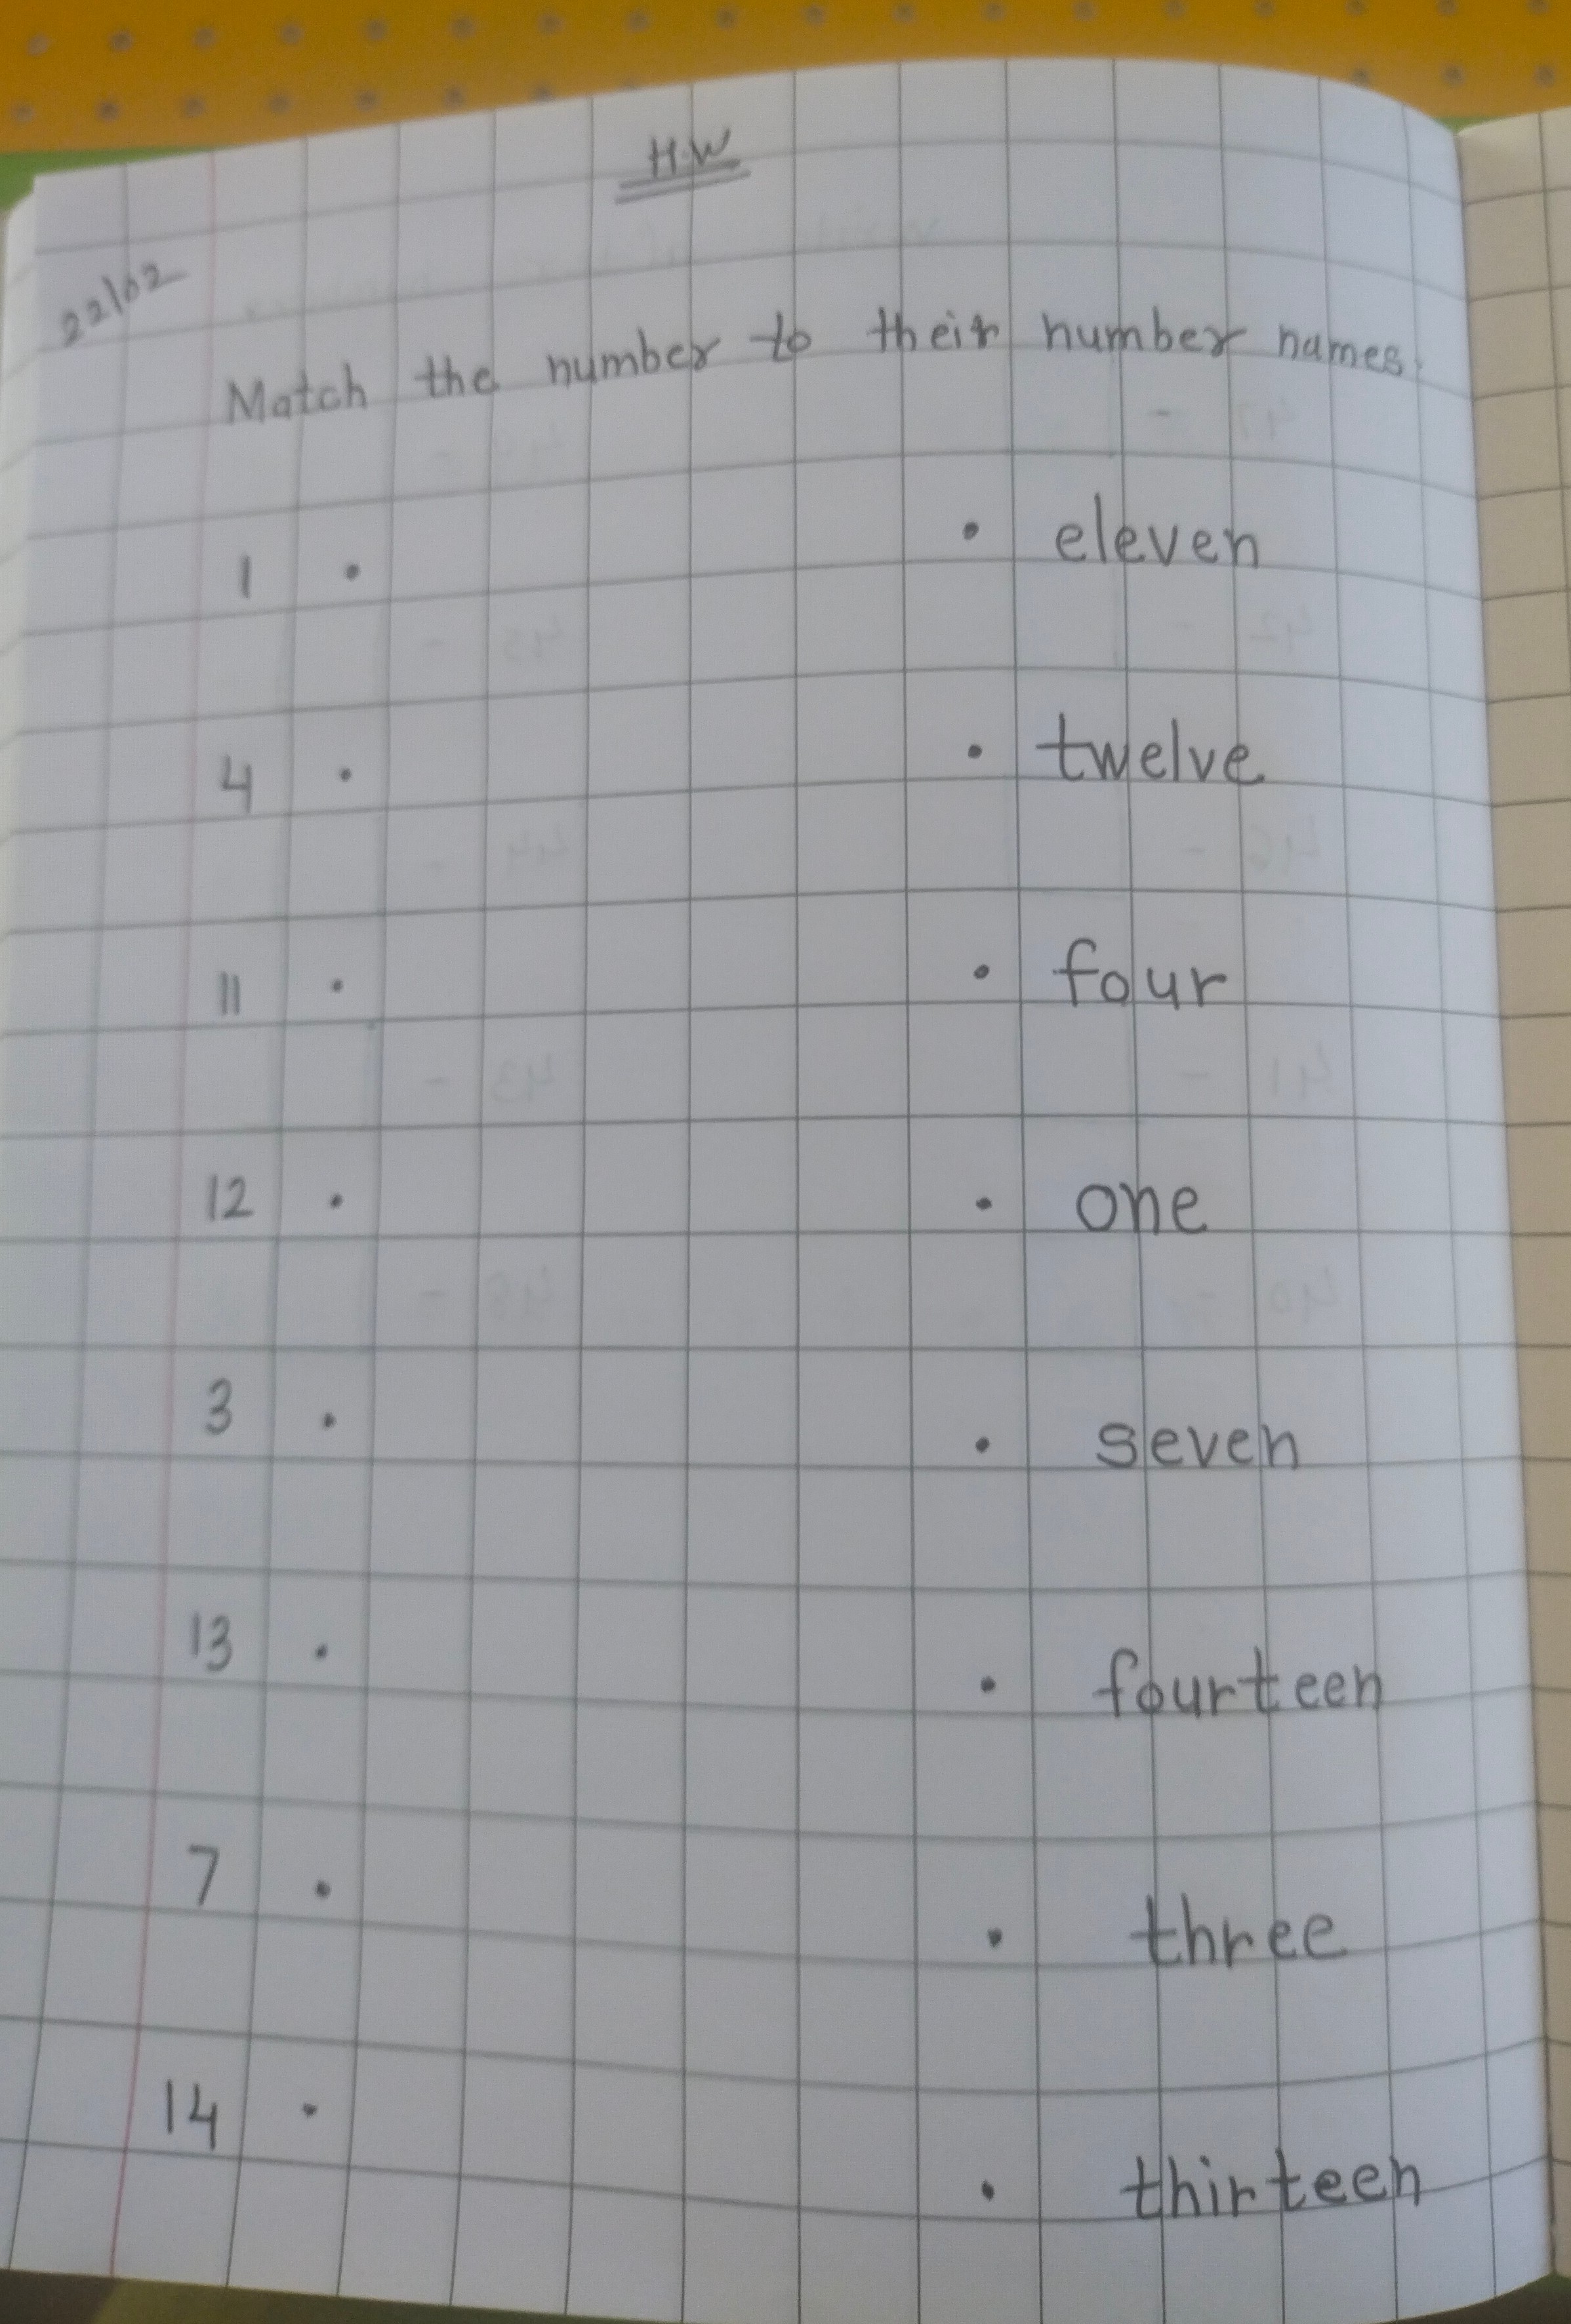 H.W
22/02
Match the number to their number names.
1 • • eleven
4 • • twelve
11 • • four
12 • • one
3 • • seven
13 • • fourteen
7 • • three
14 • • thirteen